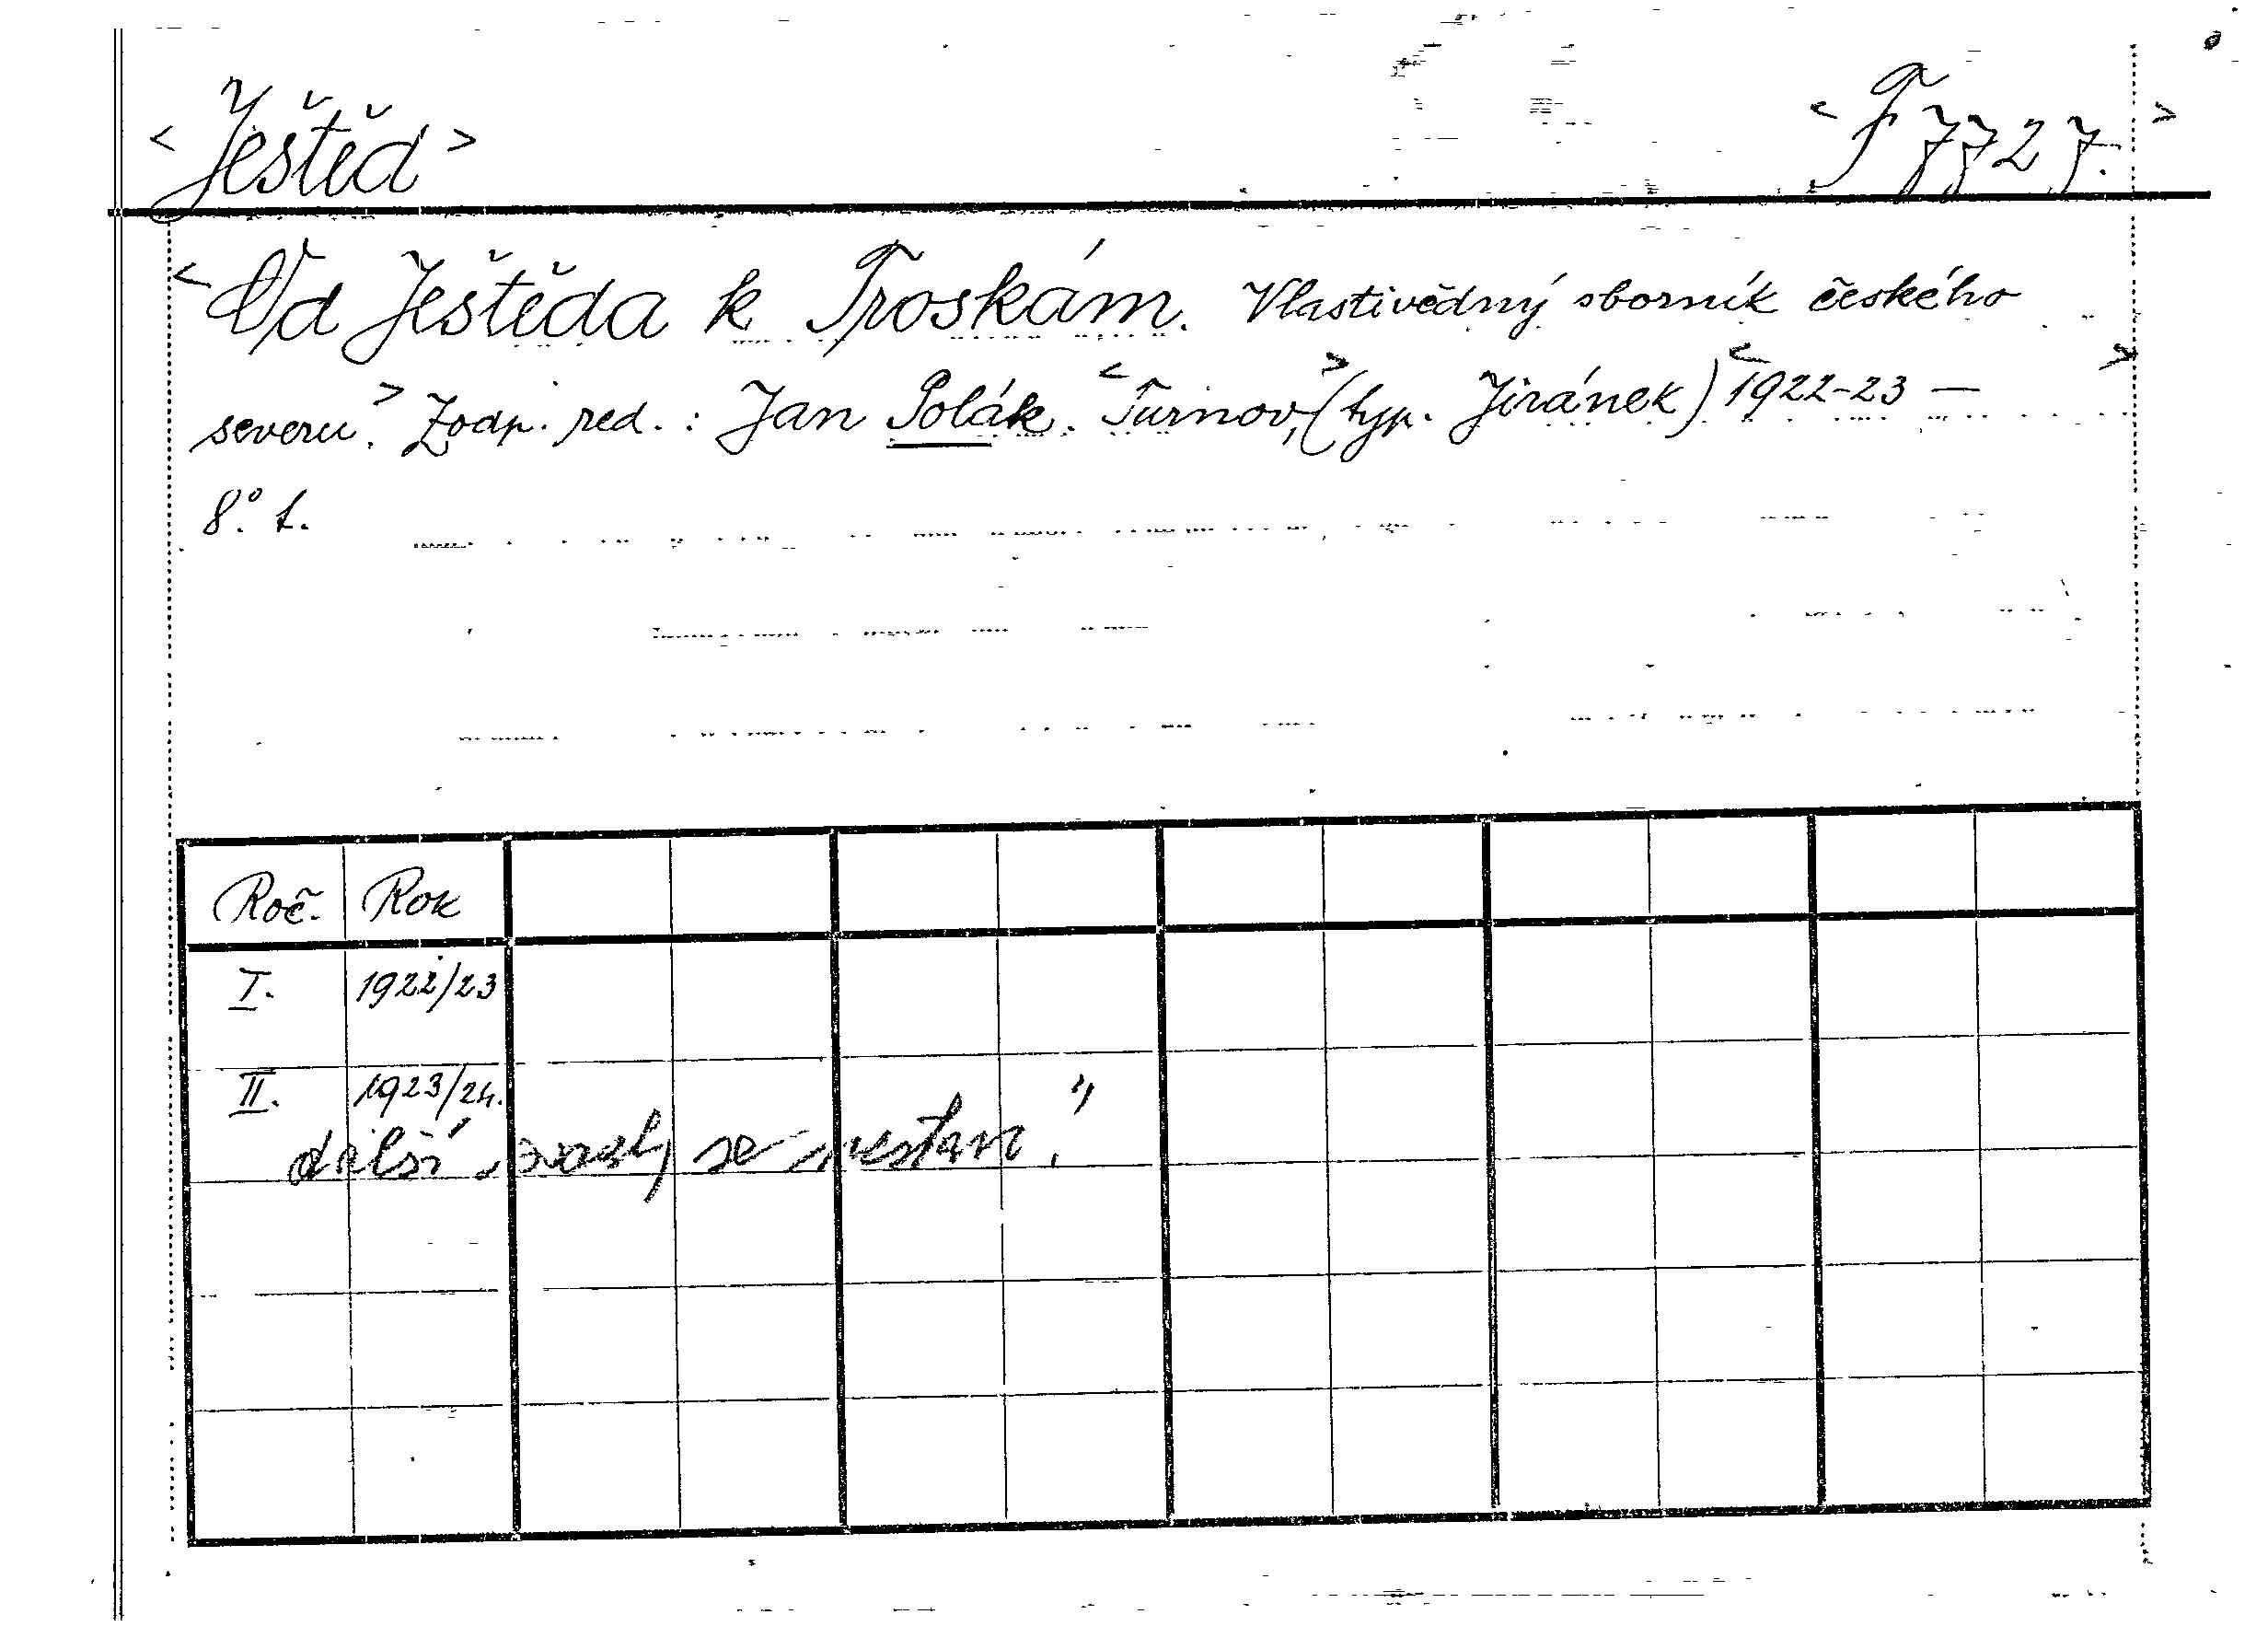 <Ještěd> <F 7727.>
<Od Ještěda k Troskám. Vlastivědný sborník českého
severu.> Zodp. red.: Jan Polák. <Turnov,> (typ. Jiránek) <1922-23 — >
8°. t.
Roč. Rok
I. 1922/23
II. 1923/24.
další svazky se